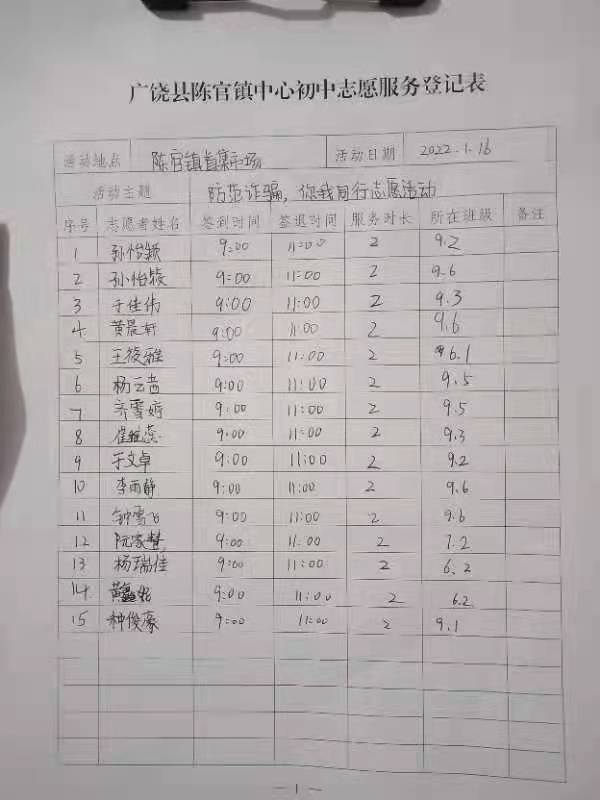 广饶县陈官镇中心初中志愿服务登记表
活动地点 陈官镇省集市场 活动日期 2022.1.16
活动主题 防范诈骗,你我同行志愿活动
序号 志愿者姓名 签到时间 签退时间 服务时长 所在班级 备注
1 孙怡颖 9:00 11:00 2 9.2
2 孙怡筱 9:00 11:00 2 9.6
3 于佳伟 9:00 11:00 2 9.3
4 黄晨轩 9:00 11:00 2 9.6
5 王筱雅 9:00 11:00 2 6.1
6 杨云茜 9:00 11:00 2 9.5
7 齐雪婷 9:00 11:00 2 9.5
8 9:00 11:00 2 9.3
9 于文卓 9:00 11:00 2 9.2
10 李雨静 9:00 11:00 2 9.6
11 钟雪飞 9:00 11:00 2 9.6
12 阮家慧 9:00 11:00 2 7.2
13 杨瑞佳 9:00 11:00 2 6.2
14 黄 9:00 11:00 2 6.2
15 种俊豪 9:00 11:00 2 9.1
— 1 —